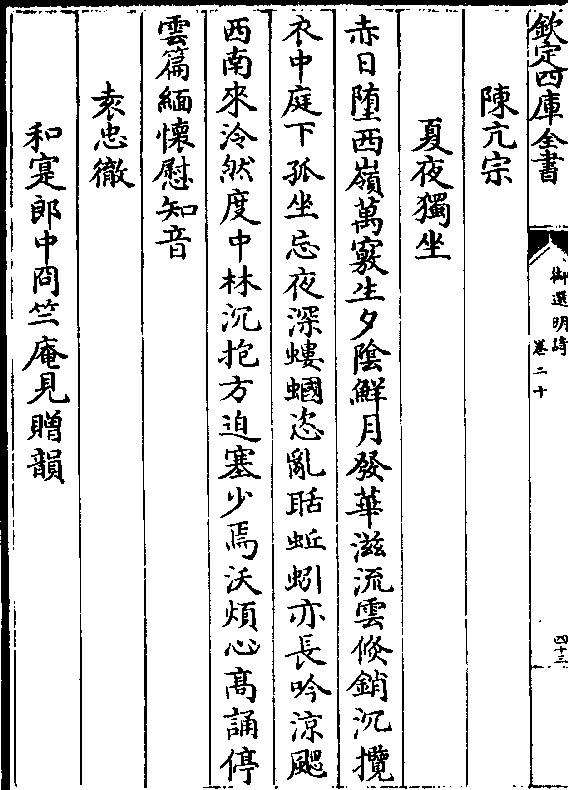 欽定四庫全書
御選明詩
卷二十
四十三
陳亢宗
夏夜獨坐
赤日墮西嶺萬竅生夕隂鮮月發華滋流雲倐銷沉攬
衣中庭下孤坐忘夜深螻蟈恣亂聒蚯蚓亦長吟涼飔
西南來泠然度中林沉抱方迫塞少焉沃煩心髙誦停
雲篇緬懷慰知音
袁忠徹
和寔郎中問竺庵見贈韻